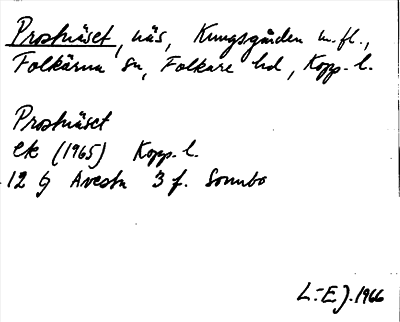 Prostnäset, näs, Kungsgården m.fl.,
Folkärna sn, Folkare hd, Kopp. l.
Prostnäset
ek (1965) Kopp. l.
12 G Avesta 3 f. Sonnbo
L.-E.J. 1966